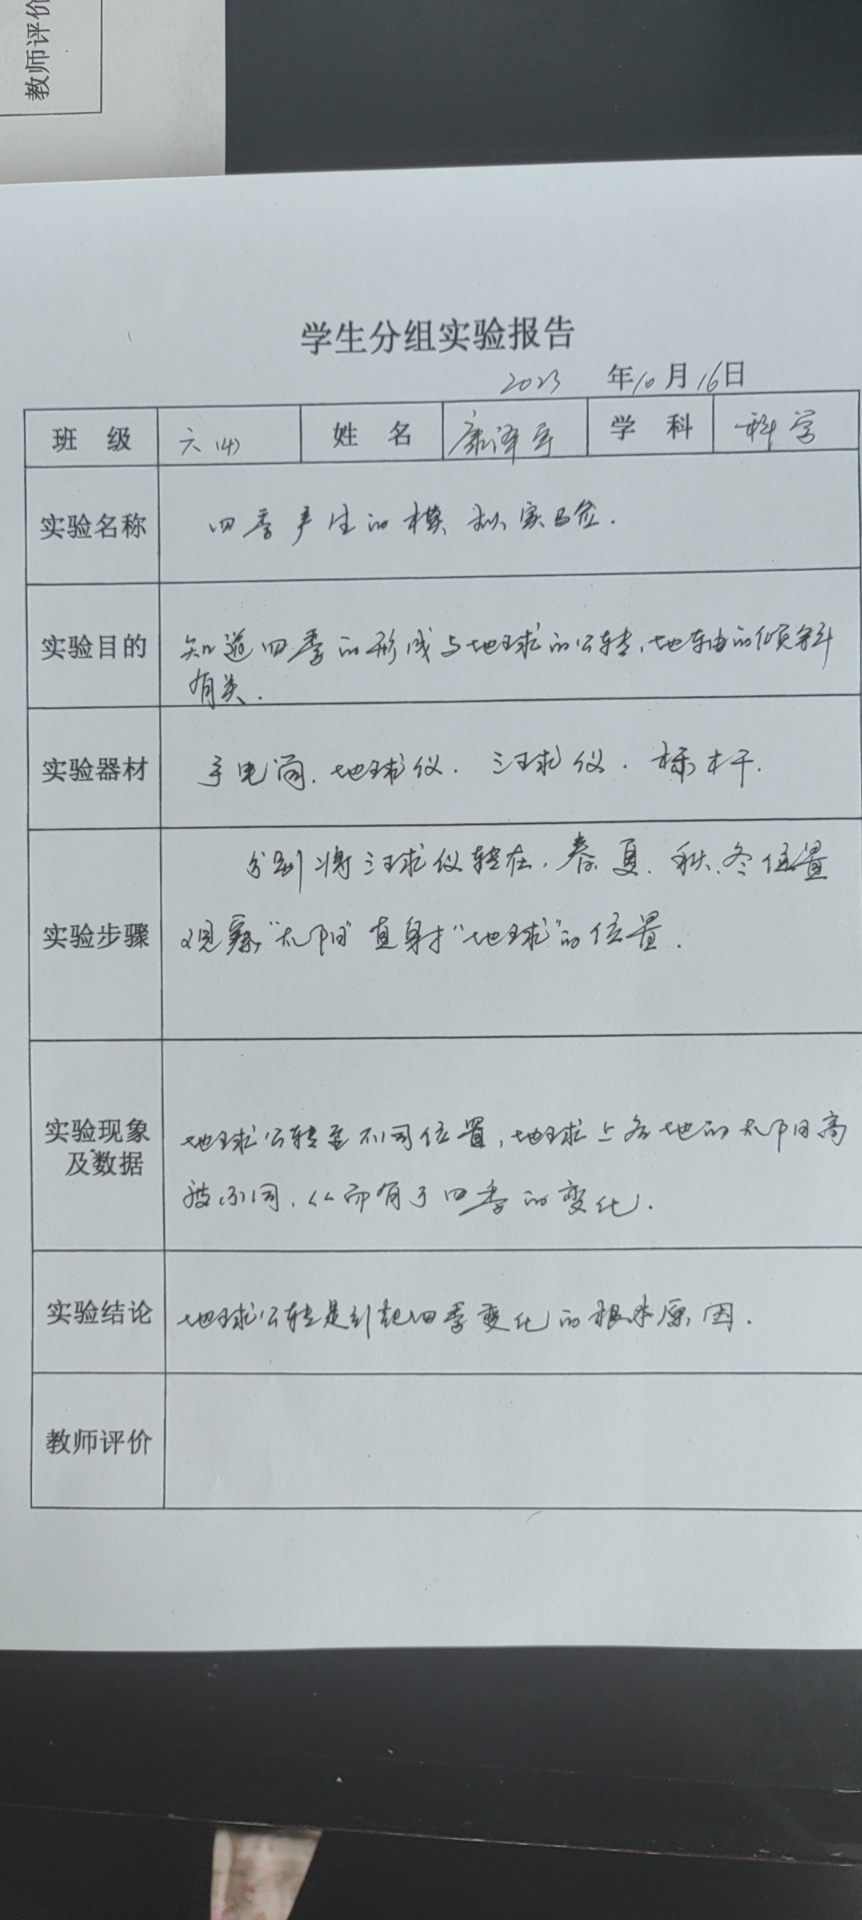 教师评价
学生分组实验报告
2023 年10月16日
班 级 六(4) 姓 名 康泽宇 学 科 科学
实验名称 四季产生的模拟实验.
实验目的 知道四季的形成与地球的公转,地轴的倾斜
有关.
实验器材 手电筒.地球仪.三球仪.标杆.
实验步骤 分别将三球仪转在,春.夏.秋.冬位置
观察"太阳"直射"地球"的位置.
实验现象
及数据 地球公转至不同位置,地球上各地的太阳高
度不同,从而有了四季的变化.
实验结论 地球公转是引起四季变化的根本原因.
教师评价